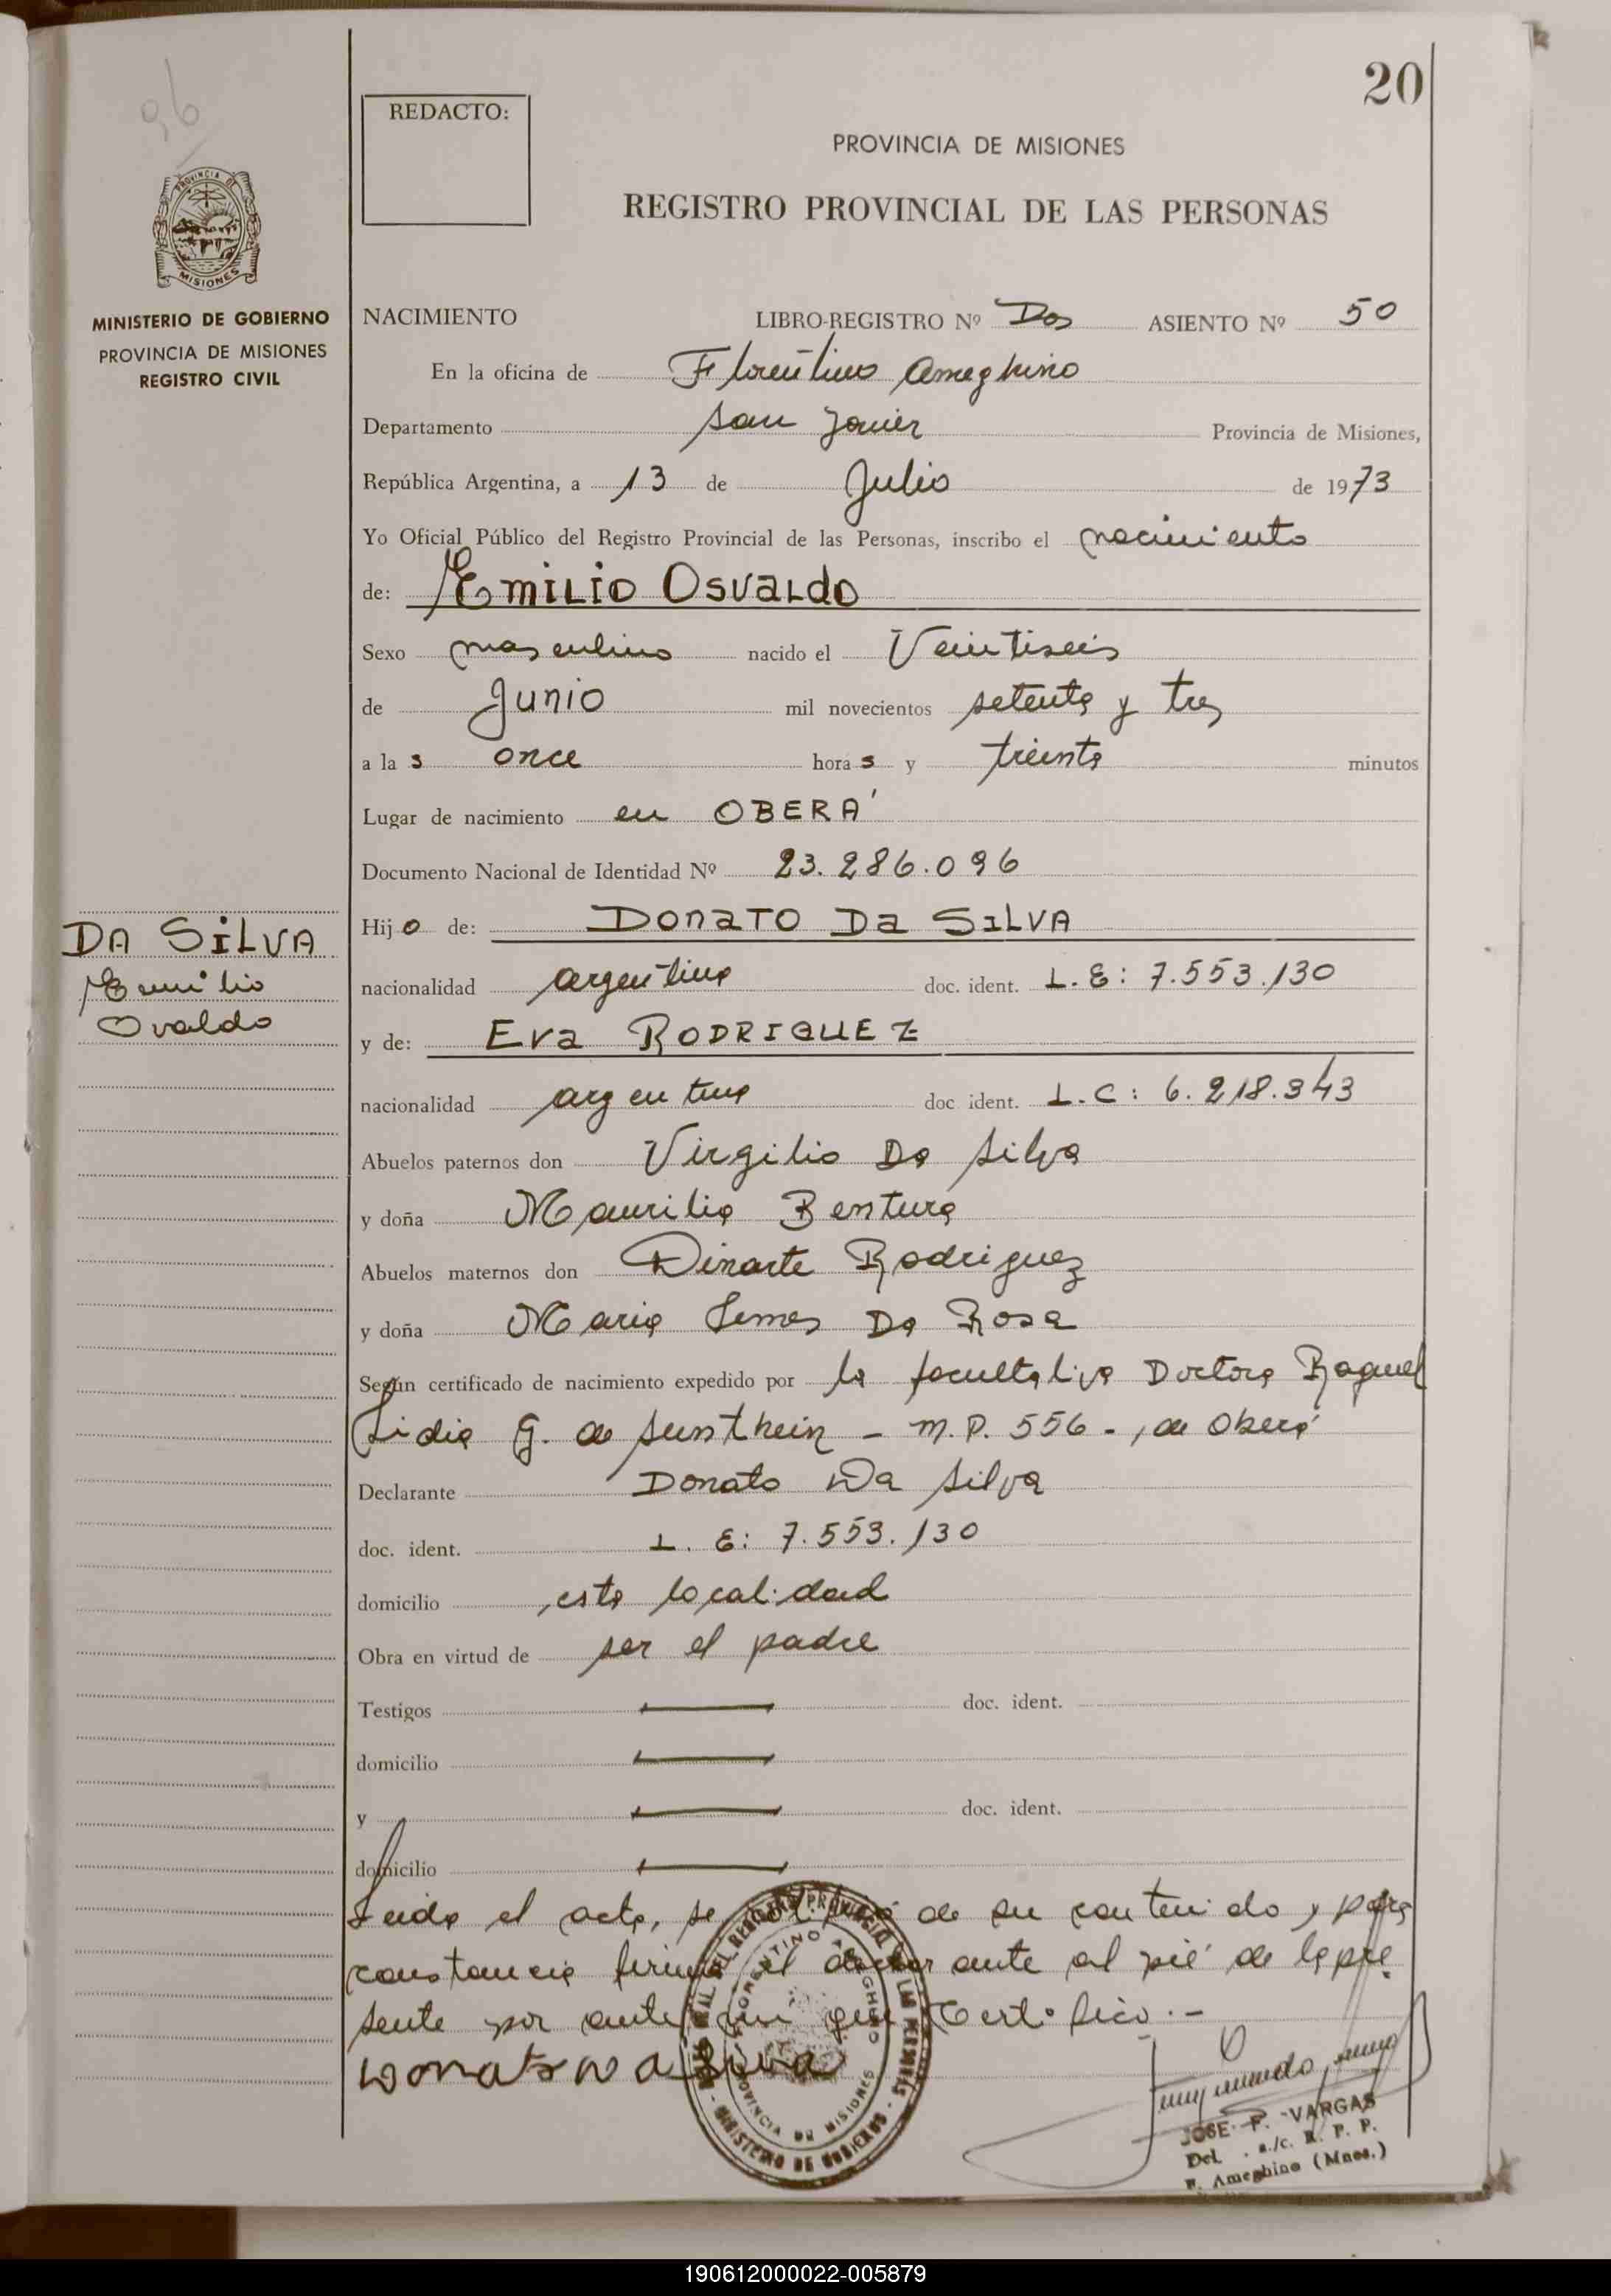 20
96
REDACTO:
PROVINCIA DE MISIONES
REGISTRO PROVINCIAL DE LAS PERSONAS
PROVINCIA DE
MISIONES
MINISTERIO DE GOBIERNO
PROVINCIA DE MISIONES
REGISTRO CIVIL
NACIMIENTO LIBRO-REGISTRO Nº Dos ASIENTO Nº 50
En la oficina de Florentino Ameghino
Departamento San Javier Provincia de Misiones,
República Argentina, a 13 de Julio de 1973
Yo Oficial Público del Registro Provincial de las Personas, inscribo el nacimiento
de: EMILIO OSVALdO
Sexo masculino nacido el Veintiseis
de Junio mil novecientos setenta y tres
a la s once hora s y treinta minutos
Lugar de nacimiento en OBERÁ
Documento Nacional de Identidad Nº 23.286.096
Hij o de: DONATO Da SILVA
DA SILVA
Emilio
Ovaldo
nacionalidad argentina doc. ident. L.E: 7.553.130
y de: Eva RODRIGUEZ
nacionalidad argentina doc ident. L.C: 6.218.343
Abuelos paternos don Virgilio Da Silva
y doña Maurilia Bentura
Abuelos maternos don Dinarte Rodriguez
y doña Maria Lemes Da Rosa
Según certificado de nacimiento expedido por la facultativa Doctora Raquel
Lidia G. de Sunthein - M.P. 556 -, de Oberá
Declarante Donato Da Silva
doc. ident. L.E: 7.553.130
domicilio esta localidad
Obra en virtud de ser el padre
Testigos doc. ident.
domicilio
y doc. ident.
domicilio
Leida el acta, se de su contenido y para
constancia firma el declarante al pié de la pre
sente por ante mi que Certifico.-
Donato Da Silva
JOSE F. VARGAS
Del. a./c. R. P. P.
F. Ameghino (Mnes.)
190612000022-005879